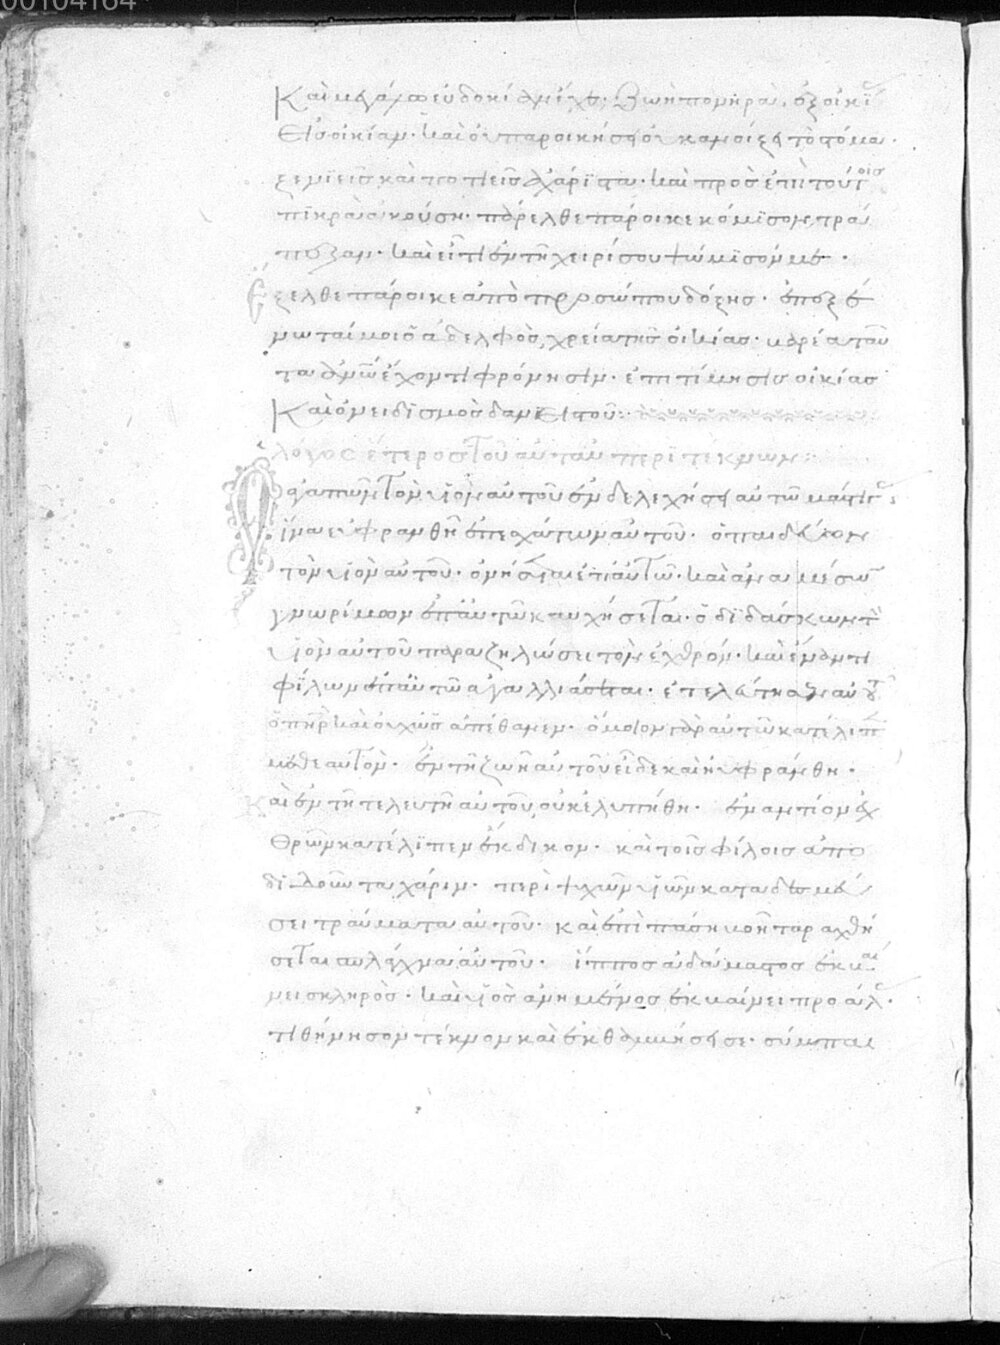 00104164
Καὶ μεγάλω εὐδοκίαν ἔχε· Ζωὴ πονηρὰ, ἐξ οἰκί
εἰς οἰκίαν· καὶ οὗ παροικήσει οὐκ ἀνοίξει τὸ στόμα·
ξενιεῖς καὶ ποτιεῖς ἀχάριστα· καὶ πρὸς ἐπὶ τούτοις
πικρὰ ἀκούση· πάρελθε πάροικε κόμισον τρά
πεζαν· καὶ εἴ τι ἐν τῆ χειρί σου ψώμισόν με·
ἔξελθε πάροικε ἀπὸ προσώπου δόξης· ἐπεξέ
νωταί μοι ὁ ἀδελφὸς, χρεία τῆς οἰκίας· βαρέα ταῦ
τα ἀνῶ ἔχοντι φρόνησιν· ἐπιτίμησις οἰκίας
Καὶ ὀνειδισμὸς δανιστοῦ:
λόγος ἕτερος τοῦ αὐτοῦ περὶ τέκνων:
Ὁ ἀγαπῶν τὸν υἱὸν αὐτοῦ ἐνδελεχήσει αὐτῶ μάστιγ
ἵνα εὐφρανθῆ ἐπ' ἐσχάτων αὐτοῦ· ὁ παιδεύων
τὸν υἱὸν αὐτοῦ· ὀνήσεται ἐπ' αὐτῶ· καὶ ἀνὰ μέσον
γνωρίμων ἐπ' αὐτῶ καυχήσεται· ὁ διδάσκων τὸν
υἱὸν αὐτοῦ παραζηλώσει τὸν ἐχθρόν· καὶ ἔναντι
φίλων ἐπ' αὐτῶ ἀγαλλιάσεται· ἐτελεύτησεν αὐτοῦ
ὁ πηρ καὶ ὡς οὐκ ἀπέθανεν· ὅμοιον γὰρ αὐτῶ κατέλιπε
μεθ' ἑαυτόν· ἐν τῆ ζωῆ αὐτοῦ εἶδε καὶ ηὐφράνθη·
καὶ ἐν τῆ τελευτῆ αὐτοῦ οὐκ ἐλυπήθη· ἐναντίον ἐχ
θρῶν κατέλιπεν ἔκδικον· καὶ τοῖς φίλοις ἀπο
διδοῦντα χάριν· περὶ ψυχῶν υἱῶν καταδεσμεύ
σει τραύματα αὐτοῦ· καὶ ἐπὶ πάση βοῆ ταραχθή
σεται σπλάγχνα αὐτοῦ· ἵππος ἀδάμαστος ἐκβαί
νει σκληρός· καὶ υἱὸς ἀνημένος ἐκβαίνει προαλ·
τιθήνησον τέκνον καὶ ἐκθαμβήσει σε· σύμπαι